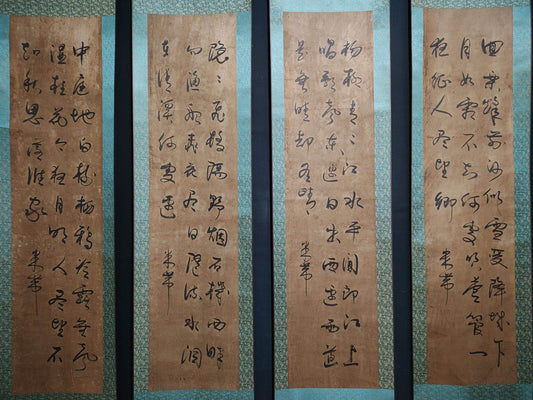 回樂峰前沙似雪受降城下
月如霜不知何處吹蘆管一
夜征人盡望鄉
米芾
楊柳青〻江水平聞郎江上
唱歌聲東邊日出西邊雨道
是無晴却有晴
米芾
隱〻飛橋隔野烟石磯西畔
問漁船桃花盡日隨流水洞
在清溪何處邊
中庭地白樹栖鴉冷露無聲
濕桂花今夜月明人盡望不
知秋思落誰家
米芾